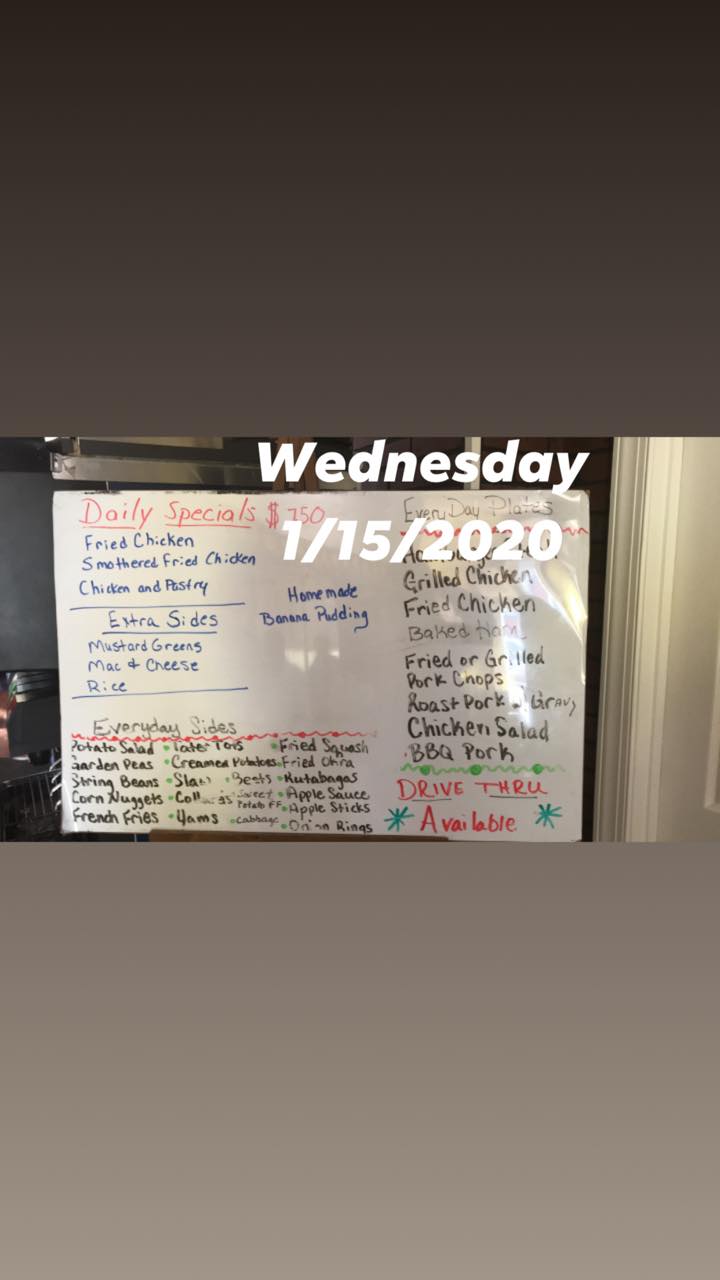 Wednesday
1/15/2020
Daily Specials $ 750
Fried Chicken
Smothered Fried Chicken
Chicken and Pastry
Homemade
Banana Pudding
Extra Sides
Mustard Greens
Mac & Cheese
Rice
Everyday Sides
Potato Salad • Tater Tots • Fried Squash
Garden Peas • Creamed Potatoes • Fried Okra
String Beans • Slaw • Beets • Rutabagas
Corn Nuggets • Sweet Potato FF • Apple Sauce
• Apple Sticks
French Fries • Yams • Cabbage • Onion Rings
Every Day Plates
Grilled Chicken
Fried Chicken
Baked Ham
Fried or Grilled
Pork Chops
Roast Pork Gravy
Chicken Salad
BBQ Pork
DRIVE THRU
Available